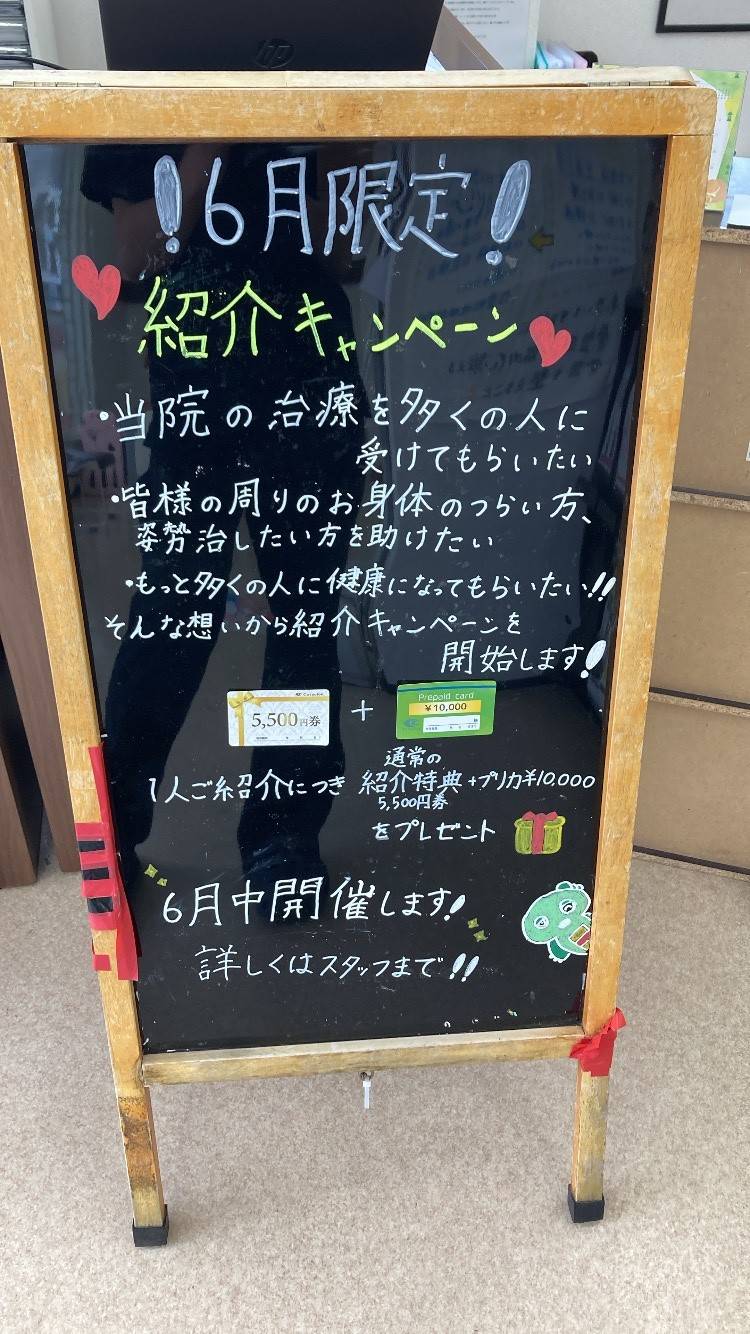 hp
!6月限定!
紹介キャンペーン
・当院の治療を多くの人に
受けてもらいたい
・皆様の周りのお身体のつらい方、
姿勢治したい方を助けたい
・もっと多くの人に健康になってもらいたい!!
そんな想いから紹介キャンペーンを
開始します!
5,500円券
+
Prepaid card
¥10,000
通常の
1人ご紹介につき 紹介特典+プリカ¥10,000
5,500円券
をプレゼント
6月中開催します!
詳しくはスタッフまで!!